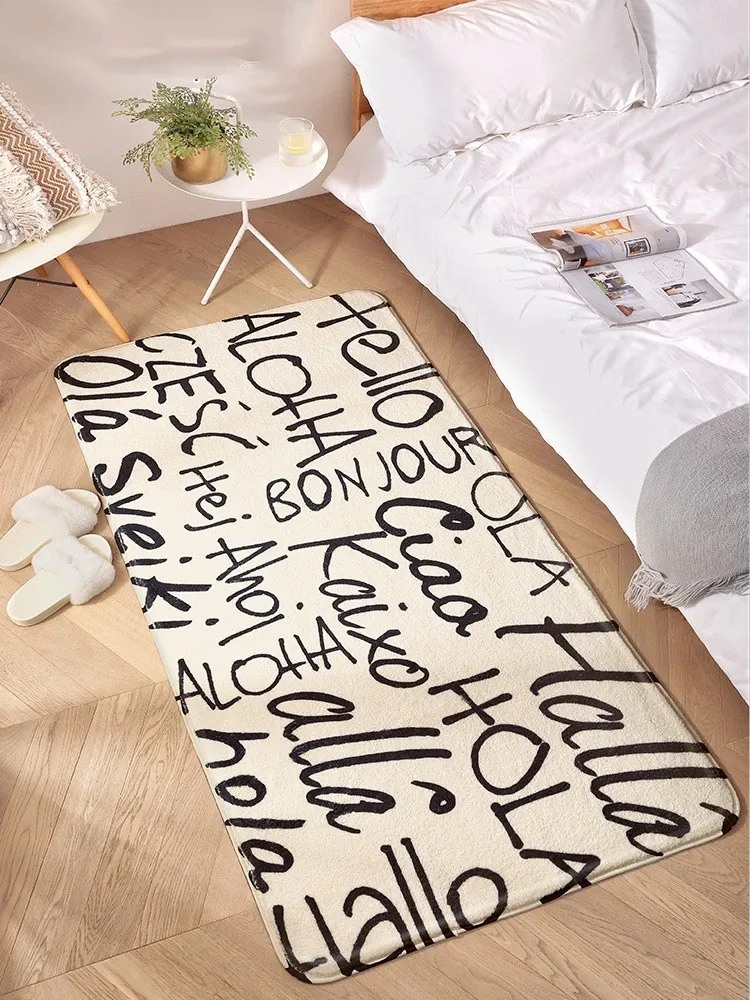 Hello
ALOHA
CZEŚĆ
Olá
BONJOUR
Hej
Sveiki
OLA
Ciao
Kaixo
Ahoj
ALOHA
Hallå
HOLA
allá
hola
Hallo